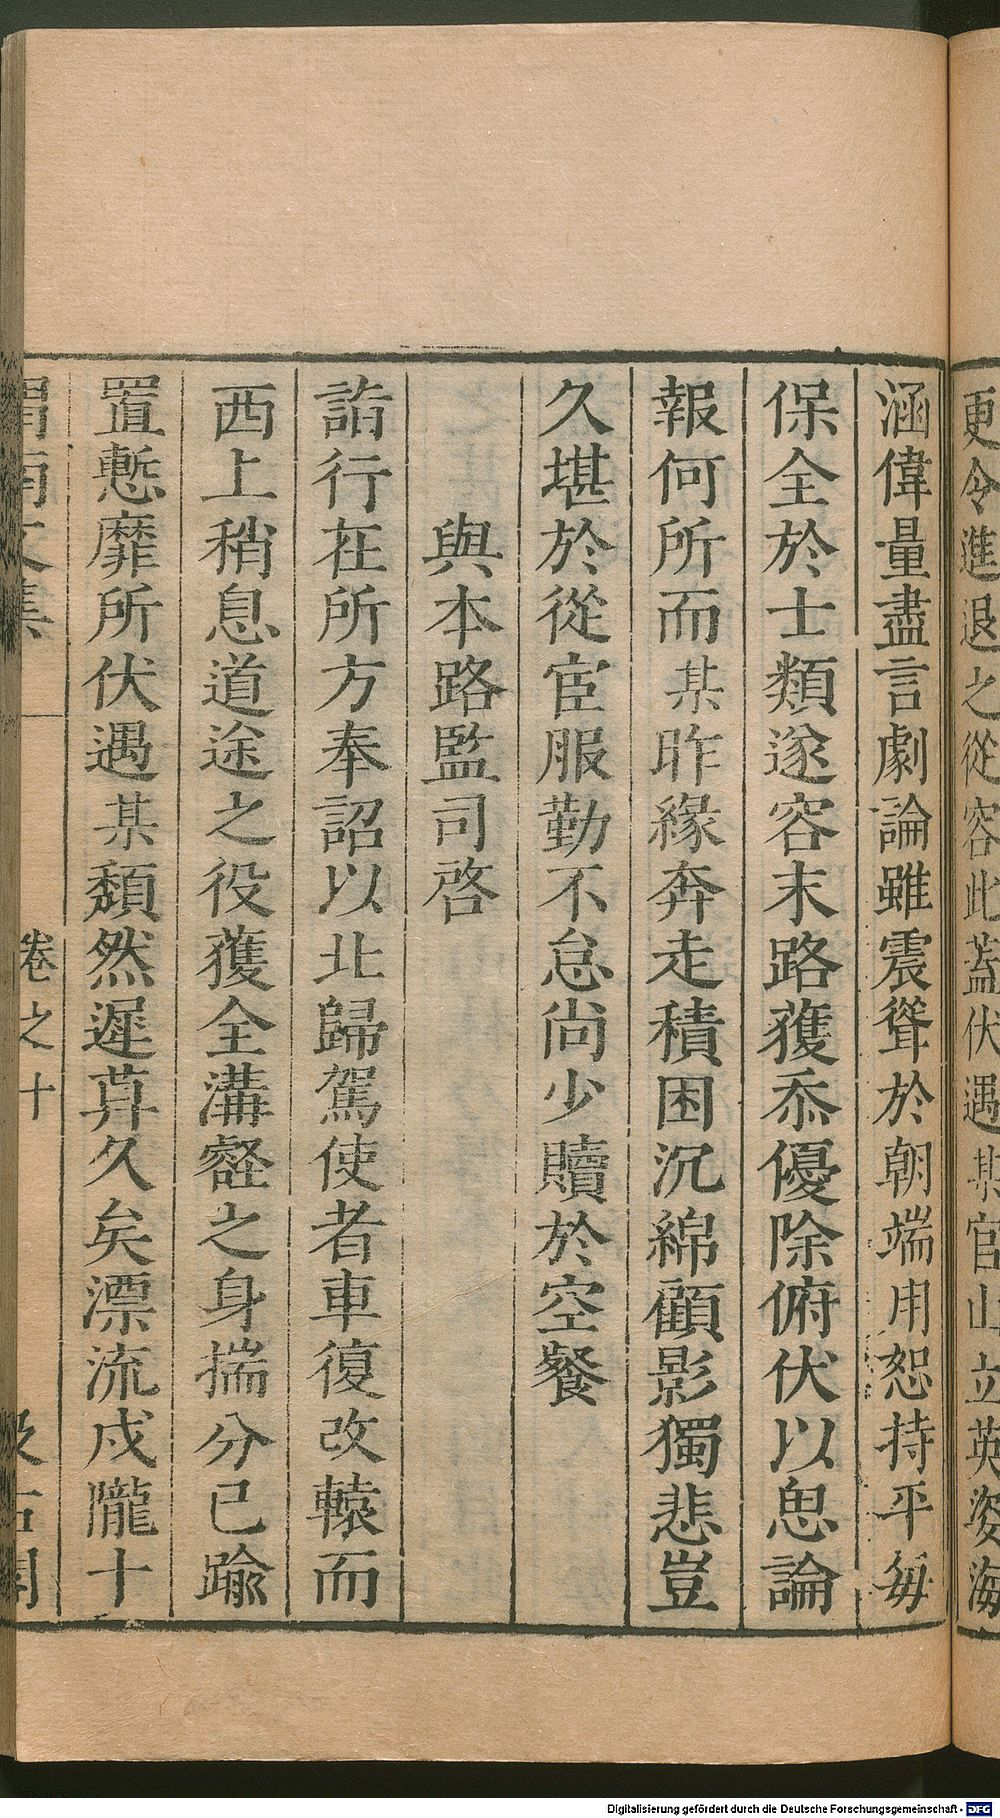 更令進退之從容此蓋伏遇某官山立英姿海
涵偉量盡言劇論雖震聳於朝端用恕持平每
保全於士類遂容末路獲忝優除俯伏以思論
報何所而某昨緣奔走積困沉綿顧影獨悲豈
久堪於從宦服勤不怠尚少贖於空餐
與本路監司啓
詣行在所方奉詔以北歸駕使者車復改轅而
西上稍息道途之役獲全溝壑之身揣分已踰
置慙靡所伏遇某頹然遲莫久矣漂流戍隴十
渭南文集 卷之十 汲古閣
Digitalisierung gefördert durch die Deutsche Forschungsgemeinschaft - DFG